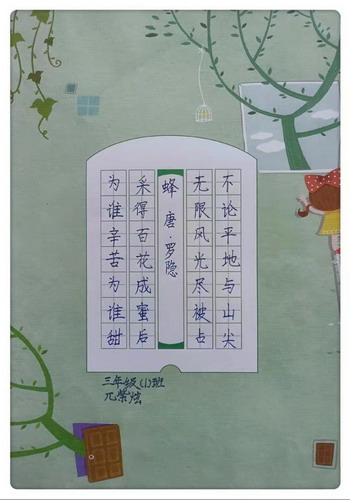 不论平地与山尖
无限风光尽被占
蜂 唐·罗隐
采得百花成蜜后
为谁辛苦为谁甜
三年级(1)班